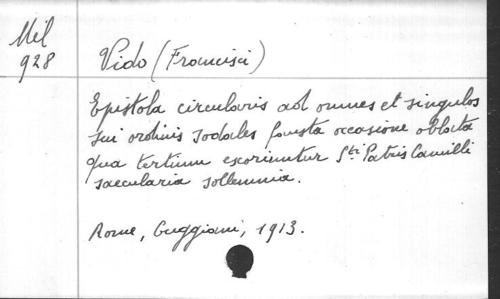 Mil
928
Vido (Francisci)
Epistola circularis ad omnes et singulos
sui ordinis sodales fausta occasione oblata
qua tertium exoriuntur Sti Patris Camilli
saecularia sollemnia.
Rome, Cuggiani, 1913.